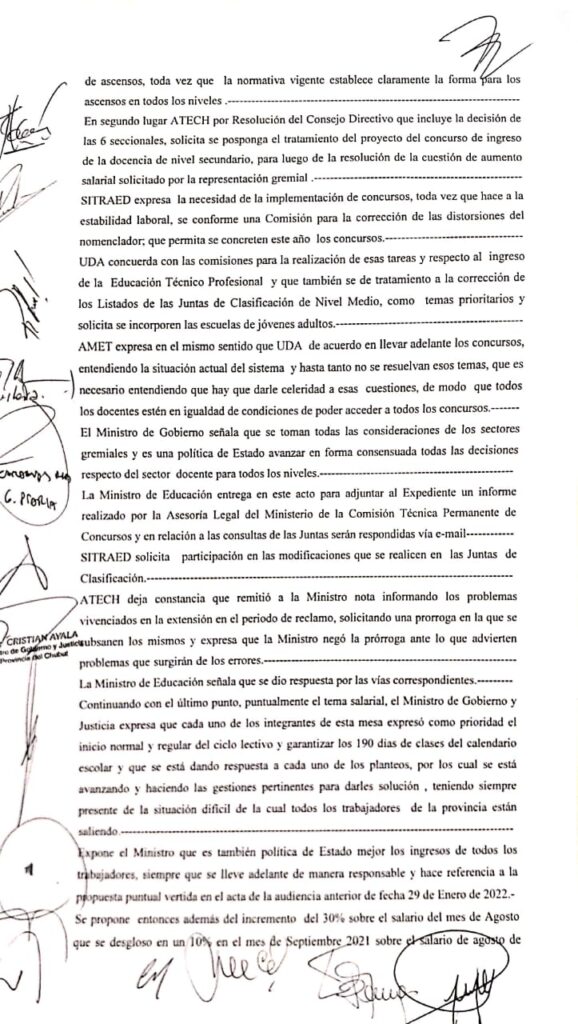 de ascensos, toda vez que la normativa vigente establece claramente la forma para los
ascensos en todos los niveles .-----------------------------------------------------------------------
En segundo lugar ATECH por Resolución del Consejo Directivo que incluye la decisión de
las 6 seccionales, solicita se posponga el tratamiento del proyecto del concurso de ingreso
de la docencia de nivel secundario, para luego de la resolución de la cuestión de aumento
salarial solicitado por la representación gremial .---------------------------------------------------
SITRAED expresa la necesidad de la implementación de concursos, toda vez que hace a la
estabilidad laboral, se conforme una Comisión para la corrección de las distorsiones del
nomenclador; que permita se concreten este año los concursos.----------------------------------
UDA concuerda con las comisiones para la realización de esas tareas y respecto al ingreso
de la Educación Técnico Profesional y que también se de tratamiento a la corrección de
los Listados de las Juntas de Clasificación de Nivel Medio, como temas prioritarios y
solicita se incorporen las escuelas de jóvenes adultos.----------------------------------------------
AMET expresa en el mismo sentido que UDA de acuerdo en llevar adelante los concursos,
entendiendo la situación actual del sistema y hasta tanto no se resuelvan esos temas, que es
necesario entendiendo que hay que darle celeridad a esas cuestiones, de modo que todos
los docentes estén en igualdad de condiciones de poder acceder a todos los concursos.-------
El Ministro de Gobierno señala que se toman todas las consideraciones de los sectores
gremiales y es una política de Estado avanzar en forma consensuada todas las decisiones
respecto del sector docente para todos los niveles.--------------------------------------------------
La Ministro de Educación entrega en este acto para adjuntar al Expediente un informe
realizado por la Asesoría Legal del Ministerio de la Comisión Técnica Permanente de
Concursos y en relación a las consultas de las Juntas serán respondidas vía e-mail------------
SITRAED solicita participación en las modificaciones que se realicen en las Juntas de
Clasificación.---------------------------------------------------------------------------------------------
ATECH deja constancia que remitió a la Ministro nota informando los problemas
vivenciados en la extensión en el periodo de reclamo, solicitando una prorroga en la que se
subsanen los mismos y expresa que la Ministro negó la prórroga ante lo que advierten
problemas que surgirán de los errores.----------------------------------------------------------------
La Ministro de Educación señala que se dio respuesta por las vías correspondientes.----------
Continuando con el último punto, puntualmente el tema salarial, el Ministro de Gobierno y
Justicia expresa que cada uno de los integrantes de esta mesa expresó como prioridad el
inicio normal y regular del ciclo lectivo y garantizar los 190 días de clases del calendario
escolar y que se está dando respuesta a cada uno de los planteos, por los cual se está
avanzando y haciendo las gestiones pertinentes para darles solución , teniendo siempre
presente de la situación difícil de la cual todos los trabajadores de la provincia están
saliendo.----------------------------------------------------------------------------------------------------
Expone el Ministro que es también política de Estado mejor los ingresos de todos los
trabajadores, siempre que se lleve adelante de manera responsable y hace referencia a la
propuesta puntual vertida en el acta de la audiencia anterior de fecha 29 de Enero de 2022.-
Se propone entonces además del incremento del 30% sobre el salario del mes de Agosto
que se desgloso en un 10% en el mes de Septiembre 2021 sobre el salario de agosto de
G. PTORIA
CRISTIAN AYALA
tro de Gobierno y Justicia
Provincia del Chubut